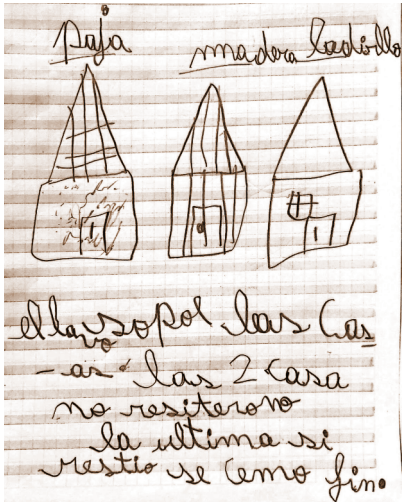 paja madera ladiollo
el lavo sopol las Cas
-as las 2 casa
no resiterono
la ultima si
restio se Cemo fin.